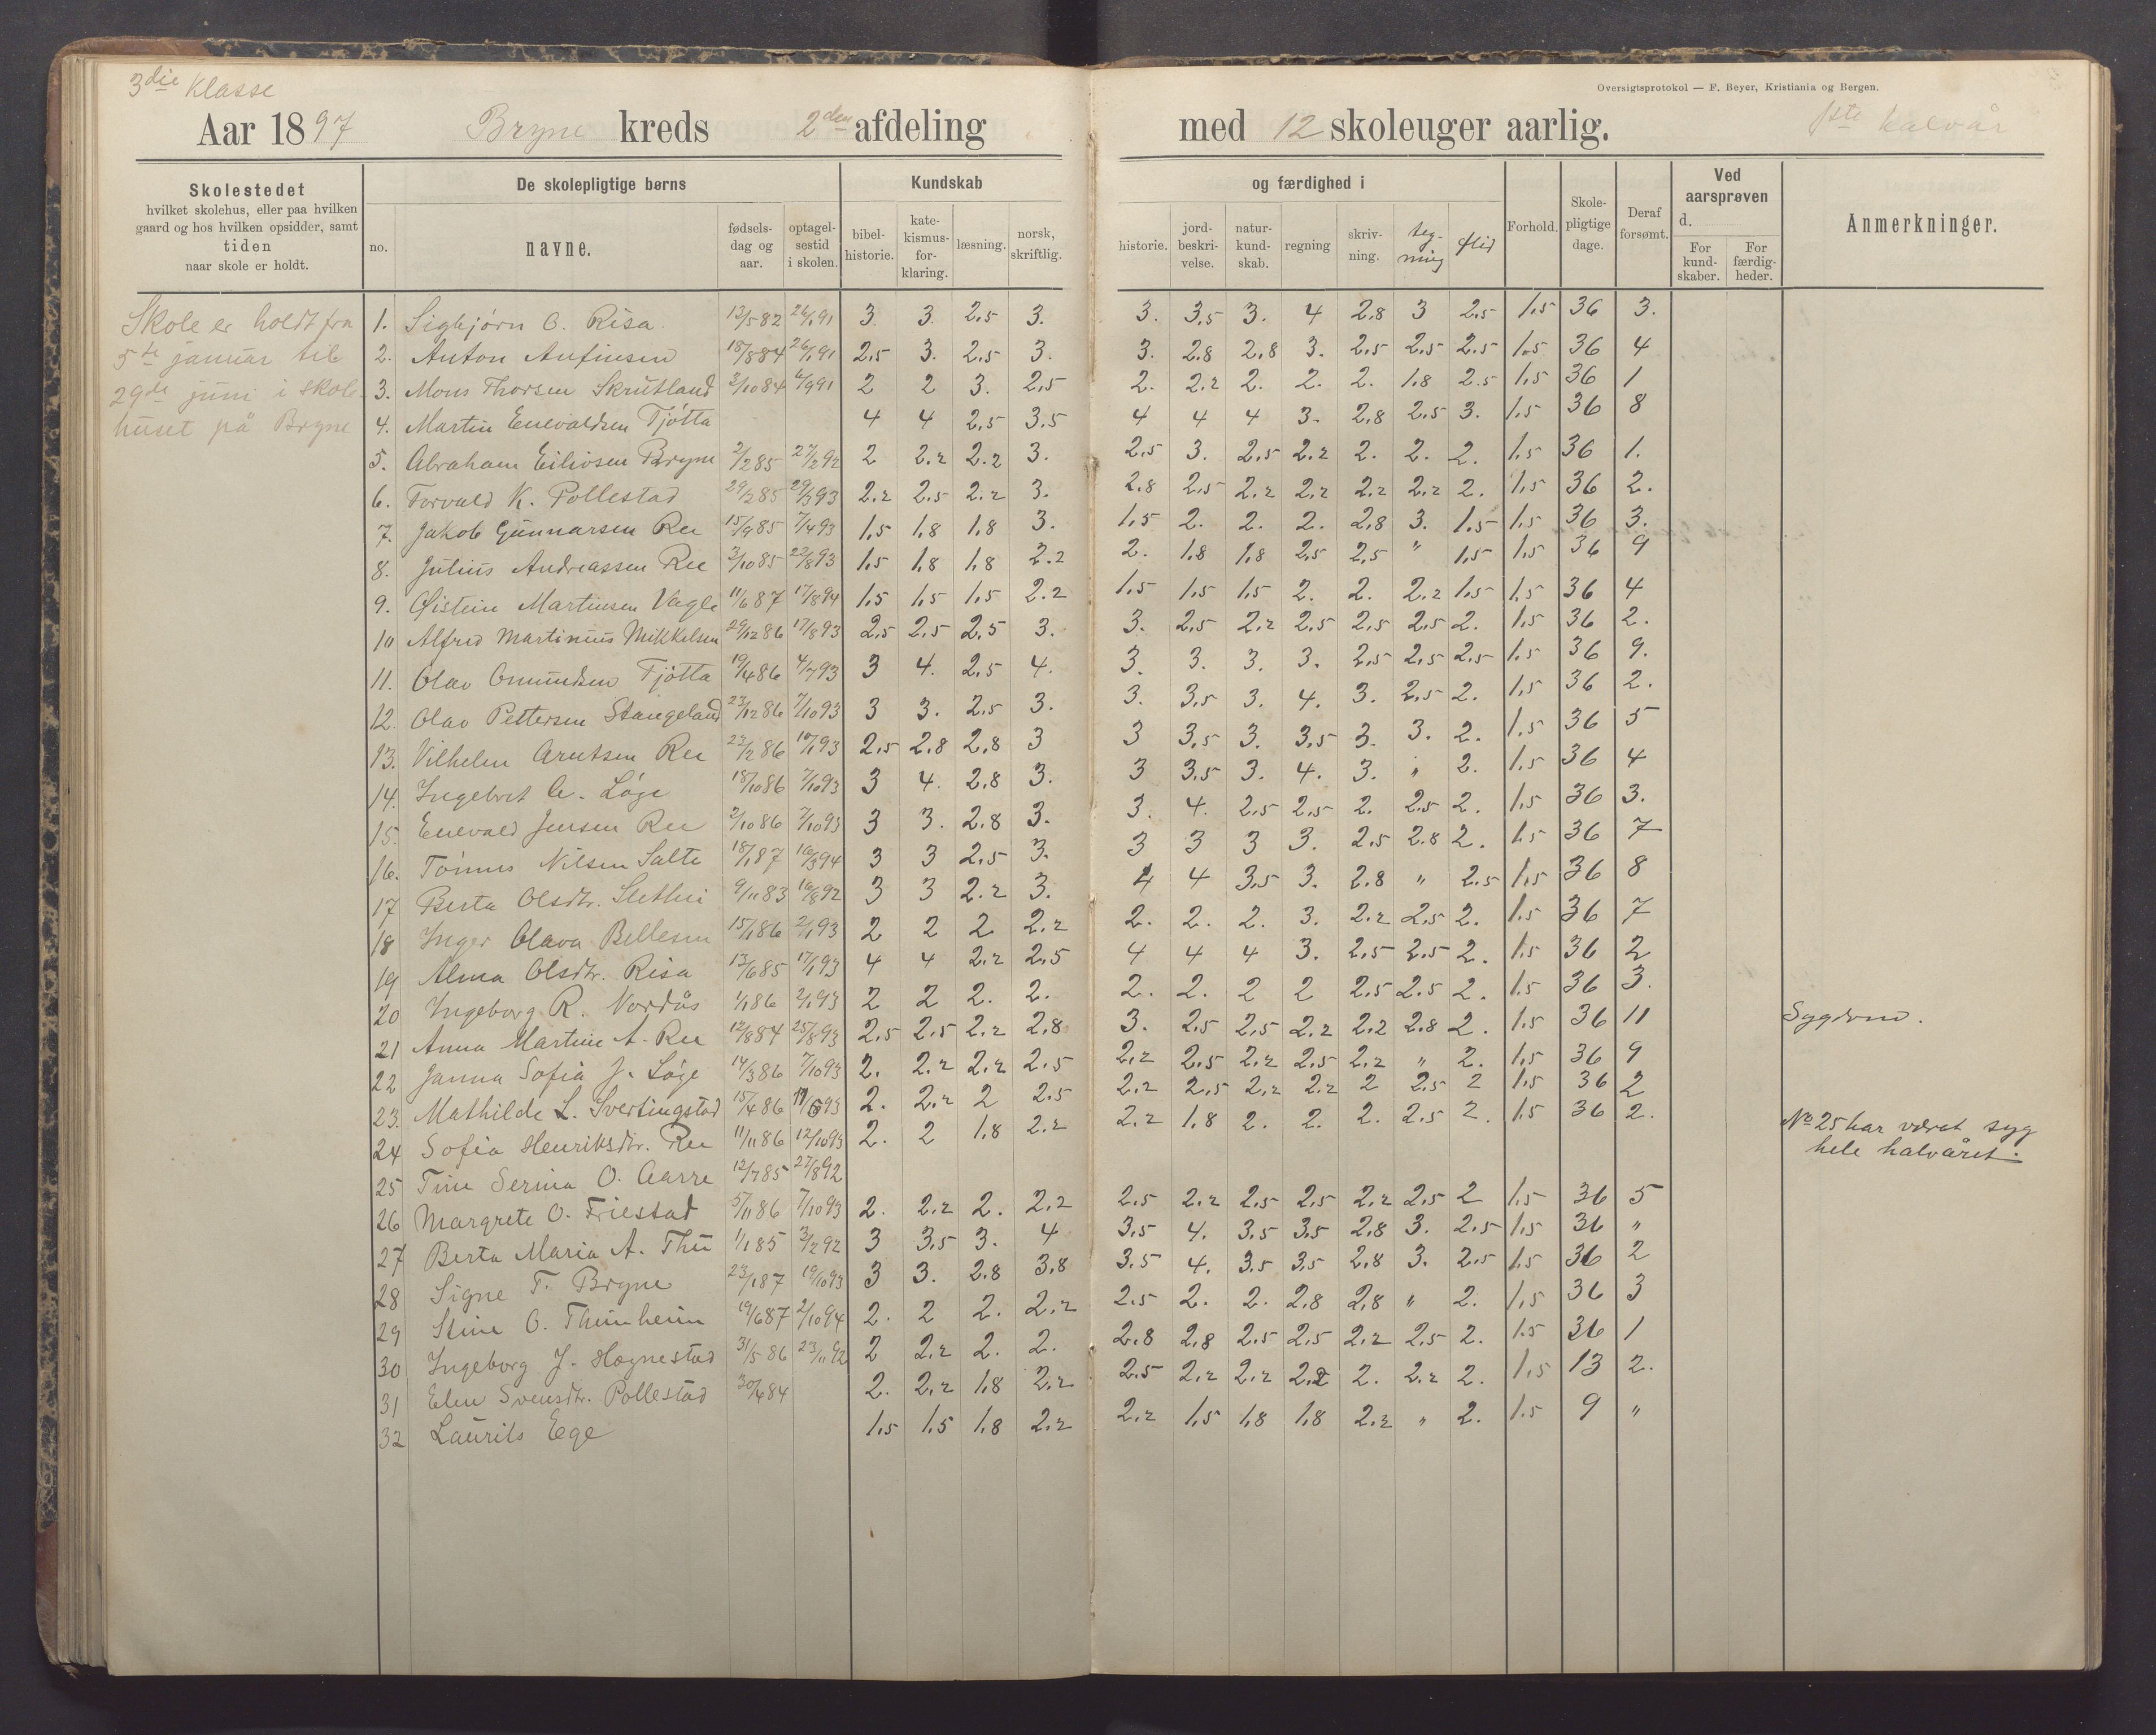 3die Klasse
Oversigtsprotokol — F. Beyer, Kristiania og Bergen.
Aar 1897 Bryne kreds 2den afdeling med 12 skoleuger aarlig. 1ste halvår
Skolestedet
hvilket skolehus, eller paa hvilken
gaard og hos hvilken opsidder, samt
tiden
naar skole er holdt.
De skolepligtige børns
no. navne. fødsels-dag og aar. optagel-sestid i skolen.
Kundskab og færdighed i
bibel-historie. kate-kismus-for-klaring. læsning. norsk, skriftlig. historie. jord-beskri-velse. natur-kund-skab. regning skriv-ning. teg-ning flid
Forhold. Skole-pligtige dage. Deraf forsømt.
Ved aarsprøven d.
For kund-skaber. For færdig-heder.
Anmerkninger.
Skole er holdt fra
5te januar til
29de juni i skole-
huset på Bryne
1. Sigbjørn O. Risa 13/5 82 26/1 91 3 3 2,5 3. 3. 3,5 3. 4 2,8 3 2,5 1,5 36 3.
2. Anton Anfinsen 18/8 84 26/1 91 2,5 3. 2,5 3. 3. 2,8 2,8 3. 2,5 2,5 2,5 1,5 36 4
3. Mons Thorsen Skrutland 2/10 84 6/9 91 2 2 3. 2,5 2. 2,2 2. 2. 2. 1,8 2,5 1,5 36 1
4. Martin Enevaldsen Tjøtta 4 4 2,5 3,5 4 4 4 3. 2,8 2,5 3. 1,5 36 8
5. Abraham Eilivsen Bryne 2/2 85 27/2 92 2 2,2 2,2 3. 2,5 3. 2,5 2,2 2. 2. 2. 1,5 36 1.
6. Torvald K. Pollestad 29/3 85 29/3 93 2,2 2,5 2,2 3. 2,8 2,5 2,2 2,2 2,2 2,2 2. 1,5 36 2.
7. Jakob Gunnarsen Ree 15/9 85 7/4 93 1,5 1,8 1,8 3. 1,5 2. 2. 2. 2,8 3. 1,5 1,5 36 3.
8. Julius Andreassen Ree 3/10 85 22/8 93 1,5 1,8 1,8 2,2 2. 1,8 1,8 2,5 2,5 " 1,5 1,5 36 9
9. Øistein Martinsen Vagle 11/6 87 17/8 94 1,5 1,5 1,5 2,2 1,5 1,5 1,5 2. 2. 2,2 1,5 1,5 36 4
10 Alfred Martinius Mikkelsen 29/12 86 17/8 93 2,5 2,5 2,5 3. 3. 2,5 2,2 2,5 2,5 2,5 2. 1,5 36 2.
11. Olav Omundsen Tjøtta 19/4 86 4/7 93 3 4. 2,5 4. 3. 3. 3. 3. 2,5 2,5 2,5 1,5 36 9.
12. Olav Pettersen Stangeland 23/12 86 7/10 93 3 3. 2,5 3. 3. 3,5 3. 4. 3. 2,5 2. 1,5 36 2.
13. Vilhelm Arntsen Ree 22/2 86 10/1 93 2,5 2,8 2,8 3 3 3,5 3. 3,5 3. 3. 2. 1,5 36 5
14. Ingebret A. Løge 18/10 86 7/10 93 3 4. 2,8 3. 3 3,5 3. 4. 3. " 2. 1,5 36 4
15. Enevald Jensen Ree 2/10 86 7/10 93 3 3. 2,8 3. 3. 4. 2,5 2,5 2. 2,5 2. 1,5 36 3.
16. Tønnes Nilsen Salte 18/1 87 16/3 94 3 3 2,5 3. 3 3 3 3. 2,5 2,8 2. 1,5 36 7
17 Berta Olsdtr. 9/11 83 16/8 92 3 3 2,2 3. 4 4 3,5 3. 2,8 " 2,5 1,5 36 8
18 Inger Olava Bellesen 15/1 86 2/1 93 2 2 2 2,2 2. 2. 2. 3. 2,2 2,5 2. 1,5 36 7
19 Alma Olsdtr. Risa 13/6 85 17/1 93 4 4 2,2 2,5 4 4 4 3. 2,5 2,5 2. 1,5 36 2
20 Ingeborg R. Nordås 1/1 86 2/1 93 2 2 2. 2. 2. 2. 2 2 2,5 2,5 2. 1,5 36 3.
21 Anna Martine A. Ree 12/8 84 25/8 93 2,5 2,5 2,2 2,8 3. 2,5 2,5 2,2 2,2 2,8 2. 1,5 36 11 Sygdom.
22 Janna Sofia J. Løge 14/3 86 7/10 93 2. 2,2 2,2 2,5 2,2 2,5 2,2 2,5 2,2 " 2. 1,5 36 9
23. Mathilde L. Svertingstad 15/4 86 17/6 93 2. 2,2 2 2,5 2,2 2,5 2,2 2,2 2 2,5 2 1,5 36 2
24 Sofia Henriksdtr. Ree 11/11 86 12/10 93 2. 2 1,8 2,2 2,2 1,8 2. 2. 2. 2,5 2. 1,5 36 2.
25 Tine Serina O. Aarre 12/7 85 27/8 92 No 25 har været syg
hele halvåret.
26 Margrete O. Friestad 5/11 86 7/10 93 2. 2,2 2. 2,2 2,5 2,2 2,5 2,5 2,2 2,5 2 1,5 36 5
27 Berta Maria A. Thu 1/1 85 3/2 92 3 3,5 3. 4 3,5 4. 3,5 3,5 2,8 3. 2,5 1,5 36 "
28 Signe T. Bryne 23/1 87 19/10 93 3 3. 2,8 3,8 3,5 4. 3,5 3,5 2,8 3. 2,5 1,5 36 2
29 Stine O. Thunheim 19/6 87 2/10 94 2. 2 2. 2,2 2,5 2. 2. 2,8 2,8 " 2. 1,5 36 3
30 Ingeborg J. Høgnestad 31/5 86 23/11 92 2 2,2 2. 2. 2,8 2,8 2,5 2,5 2,2 2,5 2. 1,5 36 1
31 Elen Svensdtr. Pollestad 30/4 84 2. 2,2 1,8 2,2 2,5 2,2 2,2 2,2 2. 2,2 2. 1,5 13 2.
32 Laurits Ege 1,5 1,5 1,8 2,2 2,2 1,5 1,8 1,8 2,2 " 2. 1,5 9 "